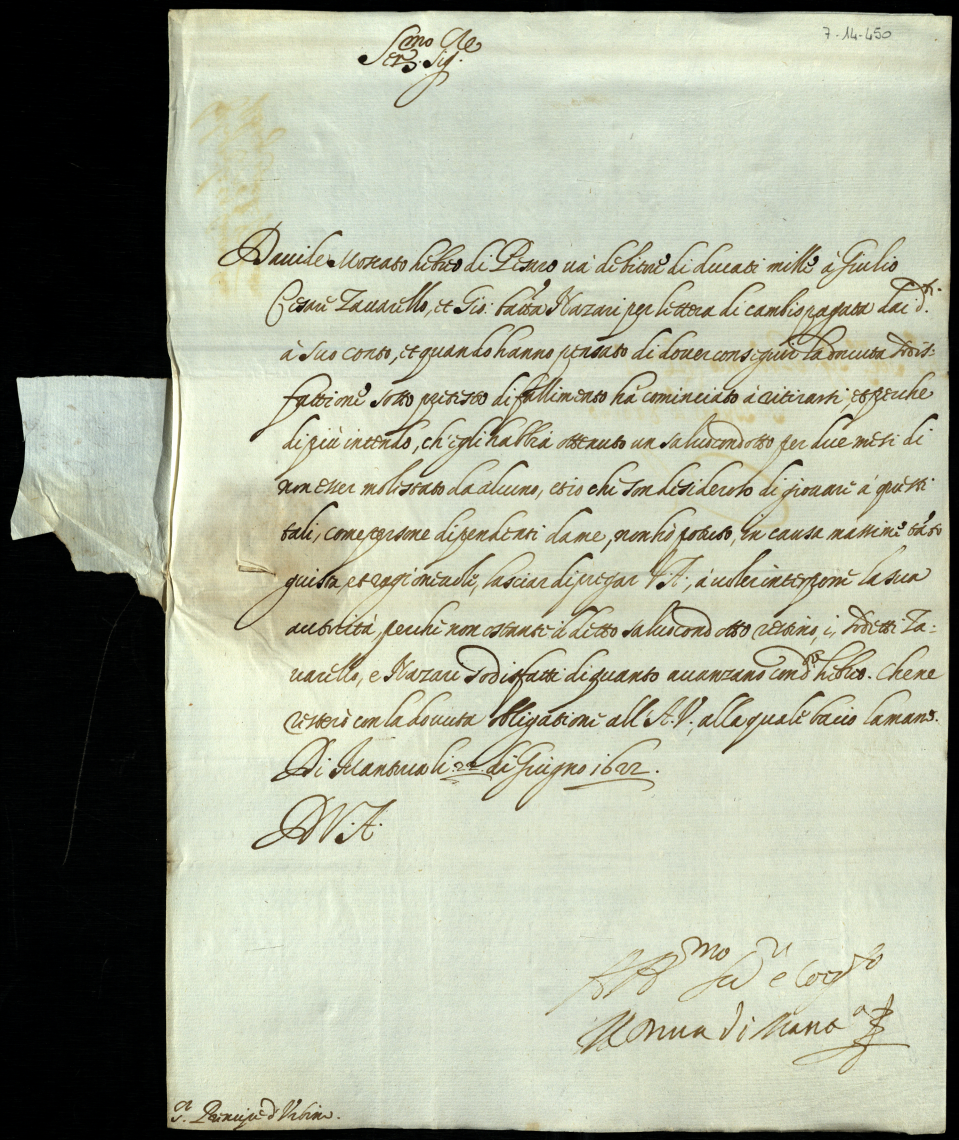 7-14-450
Ser.mo Sig.re
Dauide Moscato hebreo di Pesaro uà debitore di ducati mille à Giulio
Cesare Zauarello, et Gio: batta Nazari per lettera di cambio pagata dai d.ti
à suo conto, et quando hanno pensato di douer conseguir la douuta sodis-
fattione sotto pretesto di fallimento hà cominciato à ritirarsi, et perche
di più intendo, ch'egli habbia ottenuto un saluocondotto per due mesi di
non esser molestato da alcuno, et io che son desideroso di giouare à questi
tali, come persone dipendenti da me, non hò potuto, in causa massime tãto
giusta, et ragioneuole, lasciar di pregar V.A., à uoler interporre la sua
autorità, perche non ostante il detto saluocondotto restino, i, sodetti Za:
uarello, e Nazari sodisfatti di quanto auanzano con d.o hebreo. Che ne
resterò con la douuta obligatione all'A.V., alla quale bacio la mano.
Di Mantoua li 22 di Giugno 1622.
D V.A.
Aff.mo Ser.re e
Il Duca di Mant.a
S.r Principe d'Vrbino.